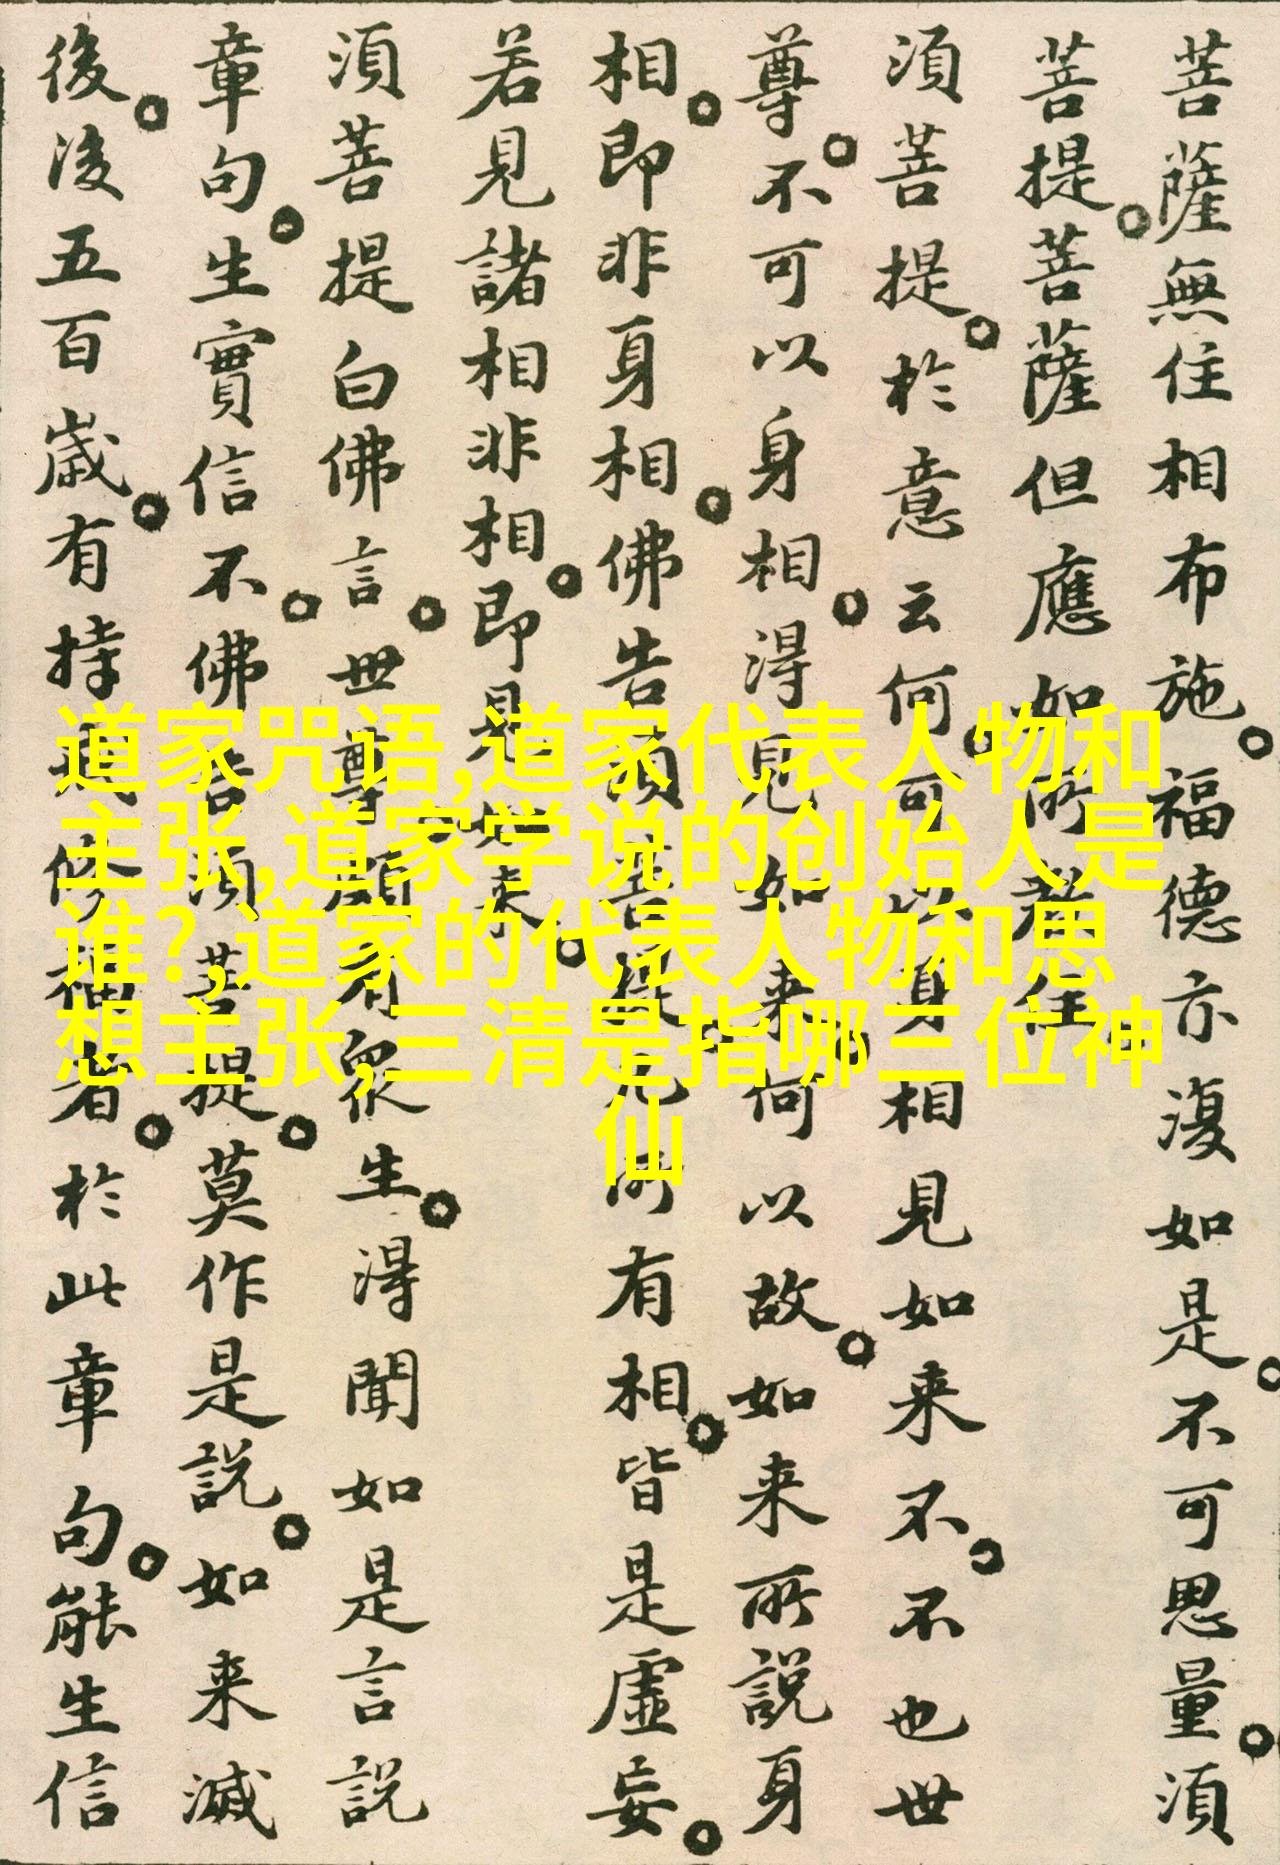 菩薩無住相布施福德亦復如是不可思量須
菩提菩薩但應如所教住
須菩提於意云何可以身相見如来不不也世
尊不可以身相得見如来何以故如来所說身
相即非身相佛告須菩提凡所有相皆是虛妄
若見諸相非相即是如来
須菩提白佛言世尊頗有衆生得聞如是言說
章句生實信不佛告須菩提莫作是說如来滅
後後五百歲有持戒修福者於此章句能生信
道家咒语,道家代表人物和
主张,道家学说的创始人是
谁?,道家的代表人物和思
想主张,三清是指哪三位神
仙